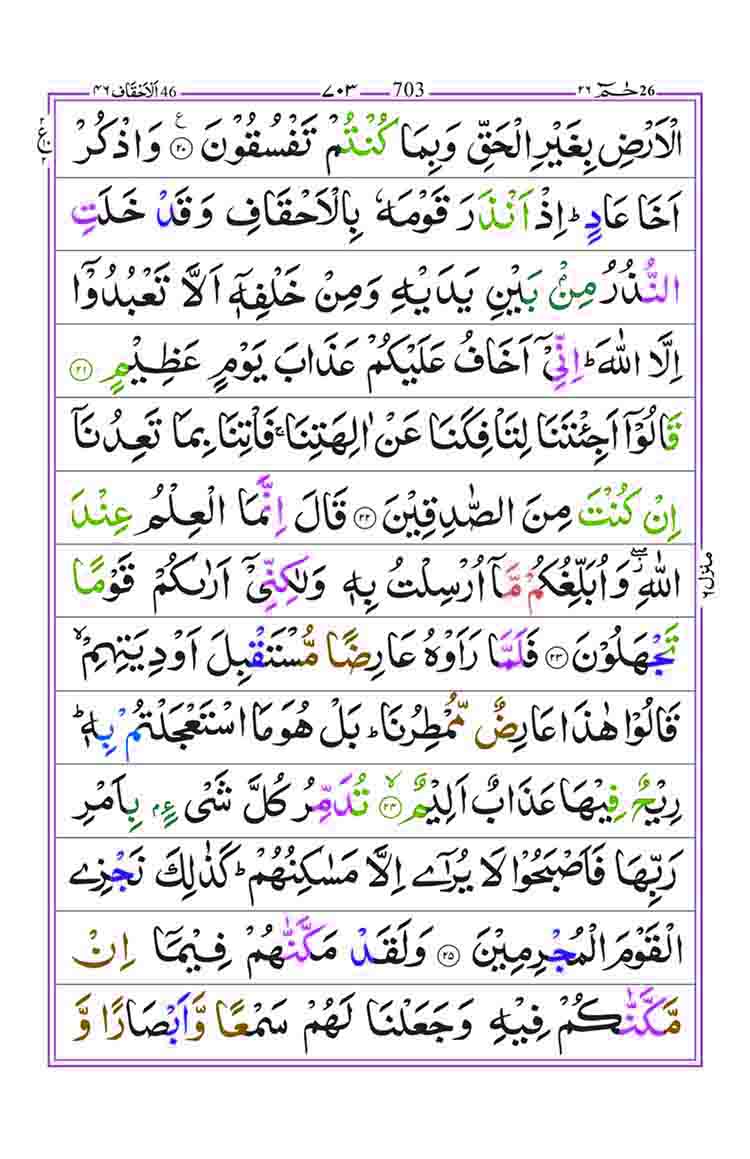 46 اَلْاَحْقَاف ۴۶ ۷۰۳ 703 حٰمٓ 26 ۲۶
الْاَرْضِ بِغَيْرِ الْحَقِّ وَبِمَا كُنْتُمْ تَفْسُقُوْنَ ۲۰ۧ وَاذْكُرْ
اَخَا عَادٍ ؕ اِذْ اَنْذَرَ قَوْمَهٗ بِالْاَحْقَافِ وَقَدْ خَلَتِ
النُّذُرُ مِنْۢ بَيْنِ يَدَيْهِ وَمِنْ خَلْفِهٖٓ اَلَّا تَعْبُدُوْٓا
اِلَّا اللّٰهَ ؕ اِنِّيْٓ اَخَافُ عَلَيْكُمْ عَذَابَ يَوْمٍ عَظِيْمٍ ۲۱
قَالُوْٓا اَجِئْتَنَا لِتَاْفِكَنَا عَنْ اٰلِهَتِنَا ۚ فَاْتِنَا بِمَا تَعِدُنَآ
اِنْ كُنْتَ مِنَ الصّٰدِقِيْنَ ۲۲ قَالَ اِنَّمَا الْعِلْمُ عِنْدَ
اللّٰهِ ۖؗ وَاُبَلِّغُكُمْ مَّآ اُرْسِلْتُ بِهٖ وَلٰكِنِّيْٓ اَرٰىكُمْ قَوْمًا
تَجْهَلُوْنَ ۲۳ فَلَمَّا رَاَوْهُ عَارِضًا مُّسْتَقْبِلَ اَوْدِيَتِهِمْ ۙ
قَالُوْا هٰذَا عَارِضٌ مُّمْطِرُنَا ؕ بَلْ هُوَ مَا اسْتَعْجَلْتُمْ بِهٖ ؕ
رِيْحٌ فِيْهَا عَذَابٌ اَلِيْمٌ ۲۴ۙ تُدَمِّرُ كُلَّ شَيْءٍۭ بِاَمْرِ
رَبِّهَا فَاَصْبَحُوْا لَا يُرٰٓى اِلَّا مَسٰكِنُهُمْ ؕ كَذٰلِكَ نَجْزِي
الْقَوْمَ الْمُجْرِمِيْنَ ۲۵ وَلَقَدْ مَكَّنّٰهُمْ فِيْمَآ اِنْ
مَّكَّنّٰكُمْ فِيْهِ وَجَعَلْنَا لَهُمْ سَمْعًا وَّاَبْصَارًا وَّ
منزل ۶